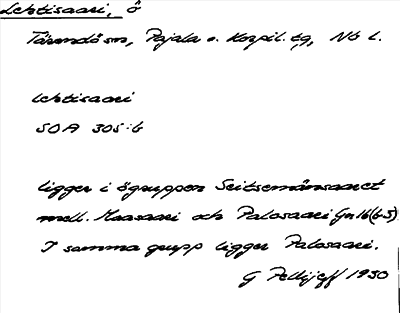 Lehtisaari, ö
Tärendö sn, Pajala o. Korpil. tg, Nb l.
Lehtisaari
SOA 305:6
ligger i ögruppen Seitsemänsaaret
mell. Maasaari och Palosaari
I samma grupp ligger Palosaari.
G Pellijeff 1950